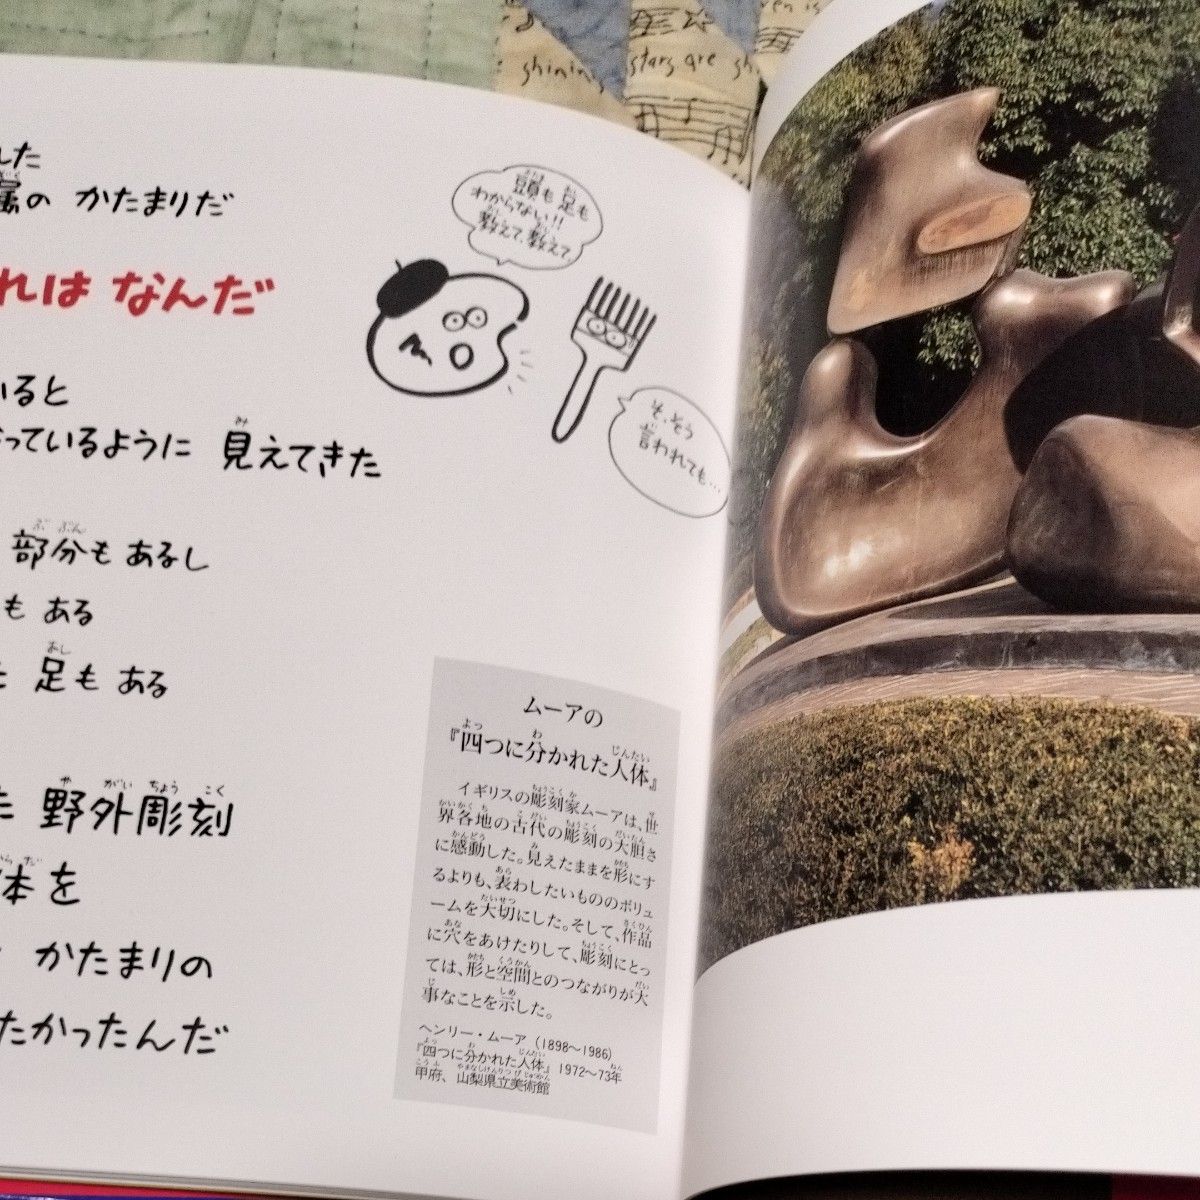 shining
stars are sh
した
属の かたまりだ
れは なんだ
頭も足も
わからない!!
教えて、教えて、
そ、そう
言われても…
いると
っているように 見えてきた
部分も あるし
も ある
足も ある
野外彫刻
体を
かたまりの
たかったんだ
ムーアの
『四つに分かれた人体』
イギリスの彫刻家ムーアは、世
界各地の古代の彫刻の大胆さ
に感動した。見えたままを形にす
るよりも、表わしたいもののボリュ
ームを大切にした。そして、作品
に穴をあけたりして、彫刻にとっ
ては、形と空間とのつながりが大
事なことを示した。
ヘンリー・ムーア (1898〜1986)
『四つに分かれた人体』 1972〜73年
甲府、山梨県立美術館